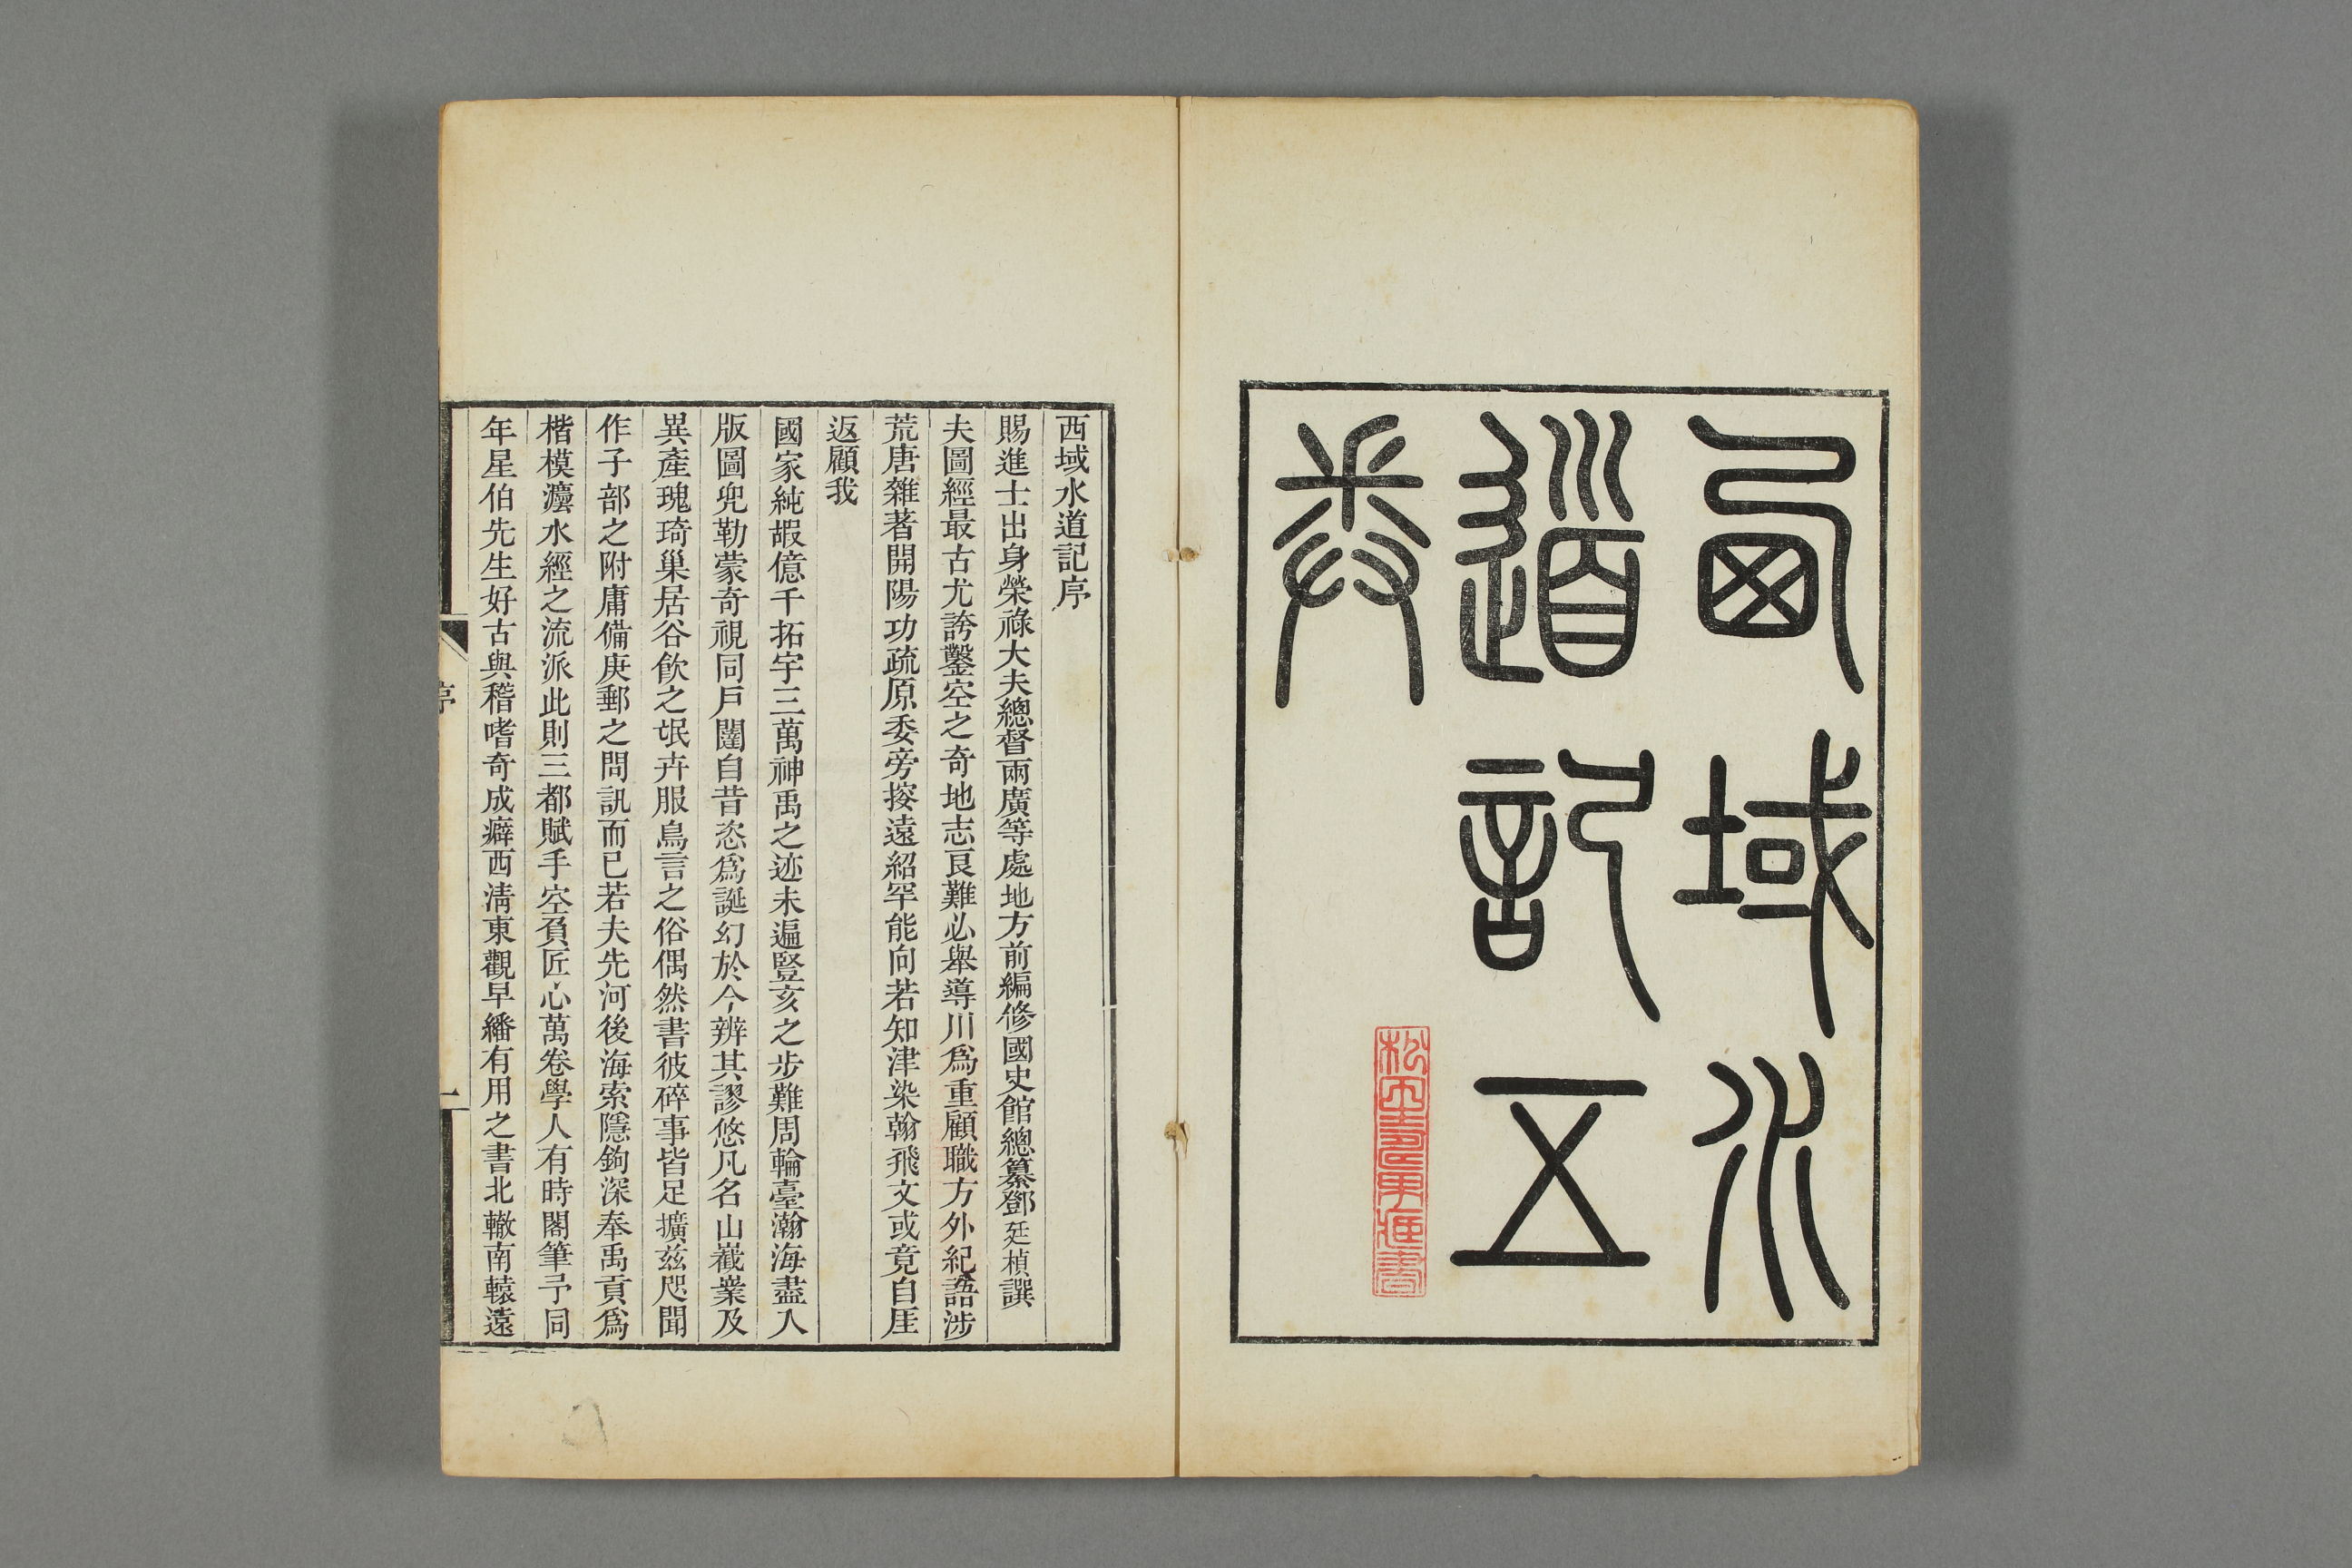 西域水
道記五
卷
西域水道記序
賜進士出身榮祿大夫總督兩廣等處地方前編修國史館總纂鄧廷楨譔
夫圖經最古尤誇鑿空之奇地志良難必舉導川爲重顧職方外紀語涉
荒唐雜著開陽功疏原委旁挍遠紹罕能向若知津染翰飛文或竟自厓
返顧我
國家純嘏億千拓宇三萬神禹之迹未遍豎亥之步難周輪臺瀚海盡入
版圖兜勒蒙奇視同戶闥自昔恣爲誕幻於今辨其謬悠凡名山嶻嶪及
異產瑰琦巢居谷飮之氓卉服鳥言之俗偶然書彼碎事皆足擴兹咫聞
作子部之附庸備庚郵之問訊而已若夫先河後海索隱鉤深奉禹貢爲
楷模灋水經之流派此則三都賦手空負匠心萬卷學人有時閣筆予同
年星伯先生好古與稽嗜奇成癖西淸東觀早繙有用之書北轍南轅遠
序
一